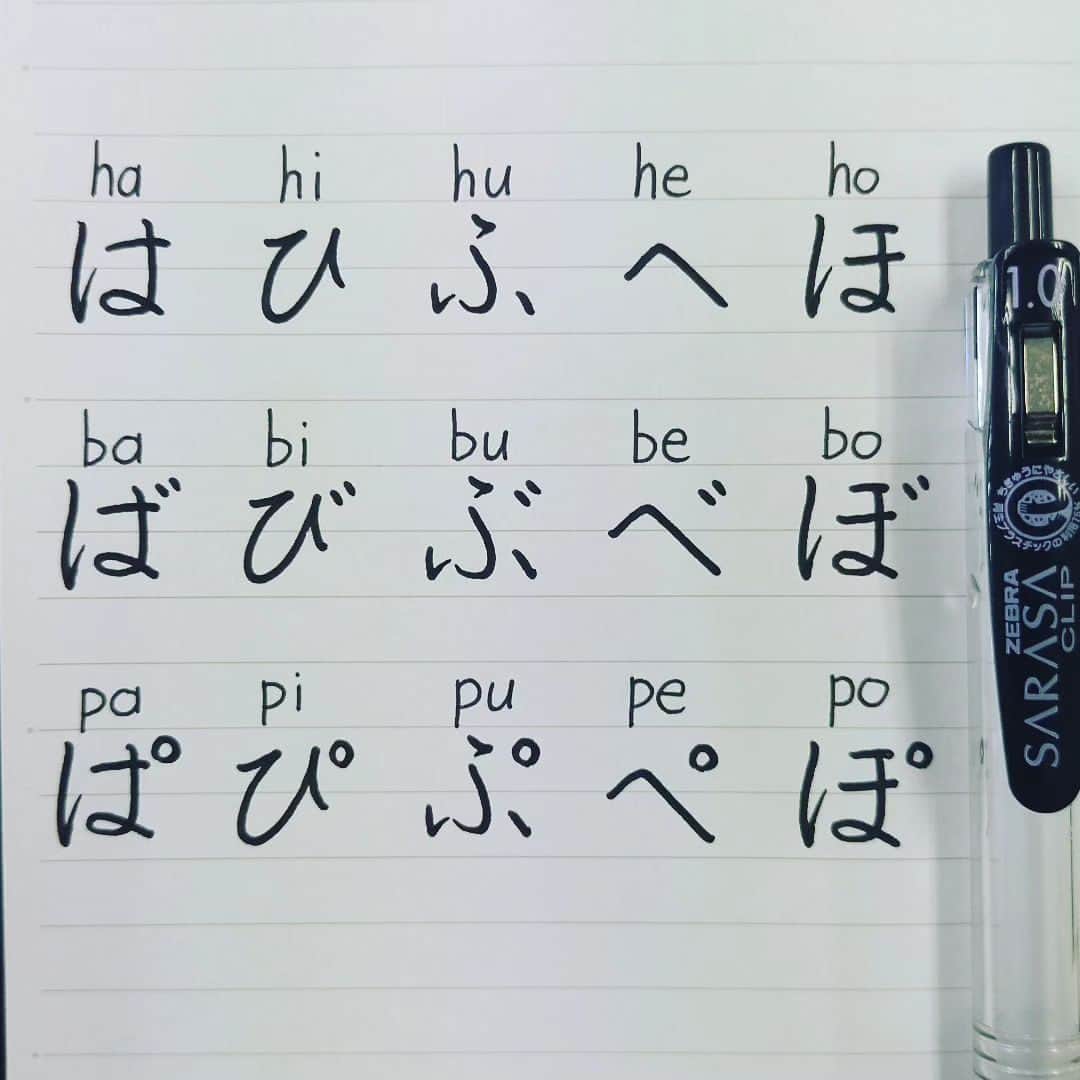 ha hi hu he ho
は ひ ふ へ ほ
ba bi bu be bo
ば び ぶ べ ぼ
pa pi pu pe po
ぱ ぴ ぷ ぺ ぽ
1.0
ちきゅうにやさしい
再生プラスチックの
ZEBRA
SARASA
CLIP